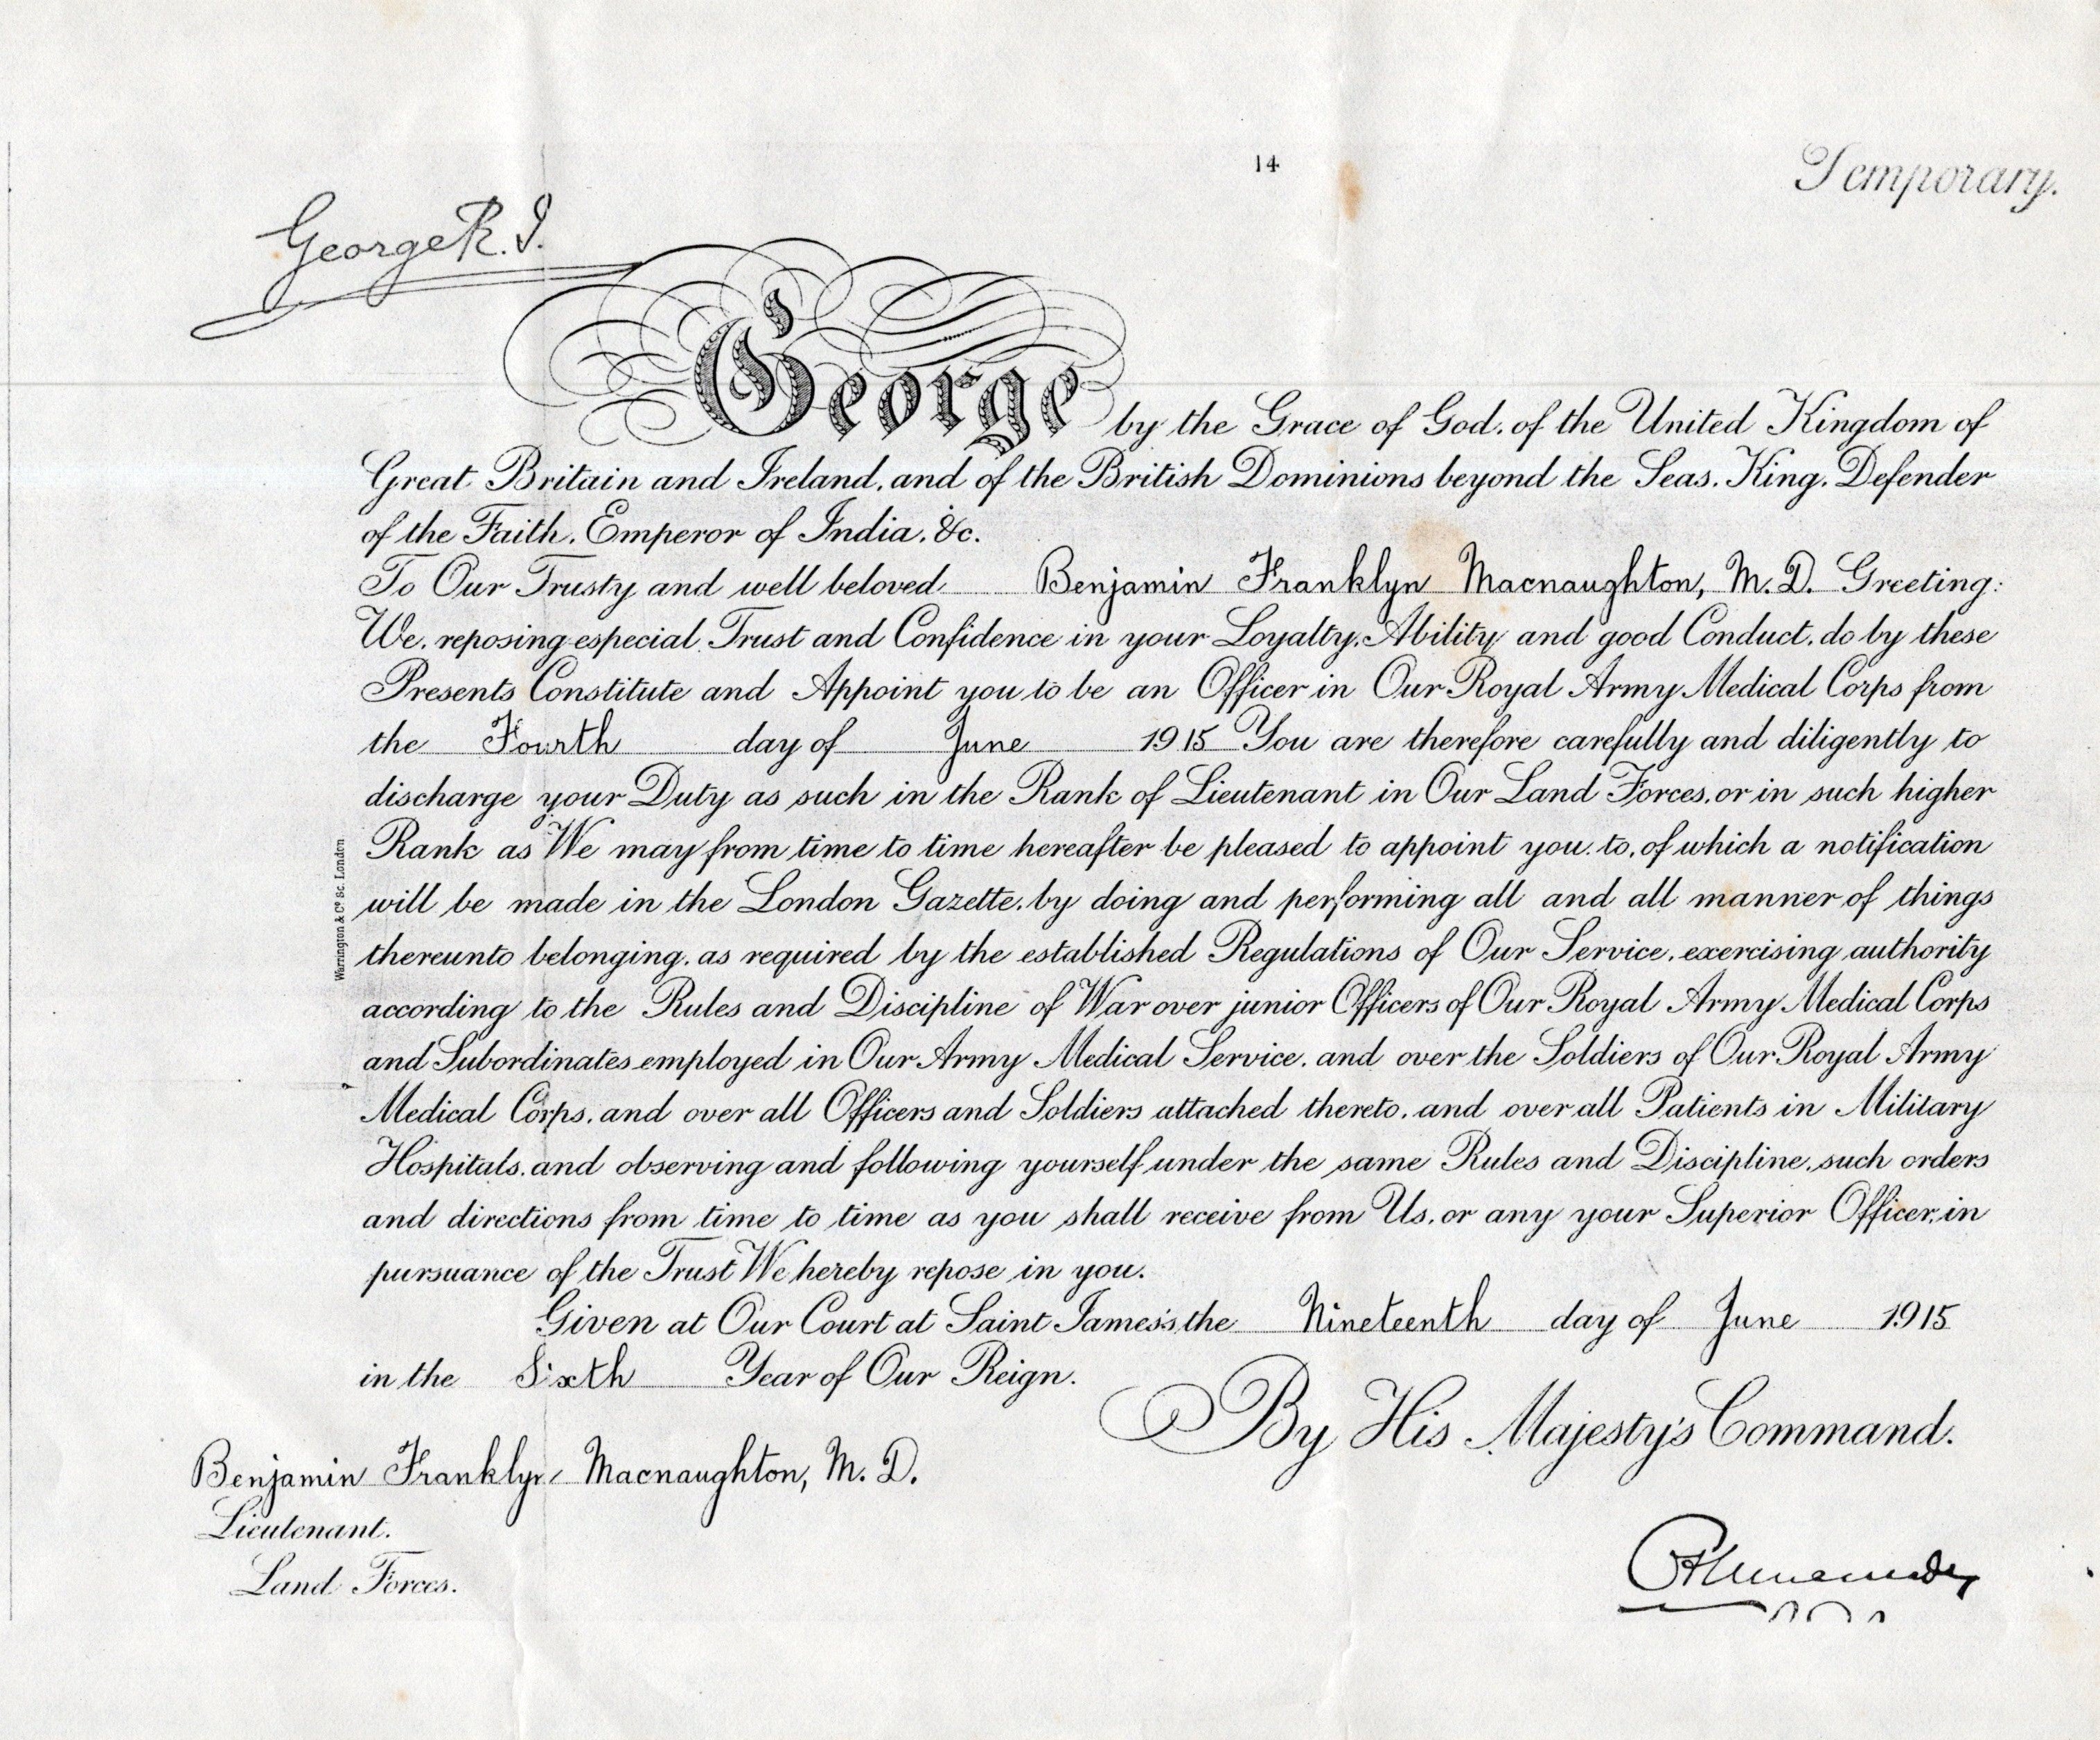 14
Temporary.
George R.I.
George by the Grace of God, of the United Kingdom of
Great Britain and Ireland, and of the British Dominions beyond the Seas, King, Defender
of the Faith, Emperor of India, &c.
To Our Trusty and well beloved Benjamin Franklyn Macnaughton, M.D. Greeting:
We, reposing especial Trust and Confidence in your Loyalty, Ability and good Conduct, do by these
Presents Constitute and Appoint you to be an Officer in Our Royal Army Medical Corps from
the Fourth day of June 1915 You are therefore carefully and diligently to
discharge your Duty as such in the Rank of Lieutenant in Our Land Forces, or in such higher
Rank as We may from time to time hereafter be pleased to appoint you to, of which a notification
will be made in the London Gazette, by doing and performing all and all manner of things
thereunto belonging, as required by the established Regulations of Our Service, exercising authority
according to the Rules and Discipline of War over junior Officers of Our Royal Army Medical Corps
and Subordinates employed in Our Army Medical Service, and over the Soldiers of Our Royal Army
Medical Corps, and over all Officers and Soldiers attached thereto, and over all Patients in Military
Hospitals, and observing and following yourself under the same Rules and Discipline, such orders
and directions from time to time as you shall receive from Us, or any your Superior Officer, in
pursuance of the Trust We hereby repose in you.
Given at Our Court at Saint James's, the Nineteenth day of June 1915
in the Sixth Year of Our Reign.
By His Majesty's Command.
Benjamin Franklyn Macnaughton, M.D.
Lieutenant.
Land Forces.
Warrington & Co. Sc. London